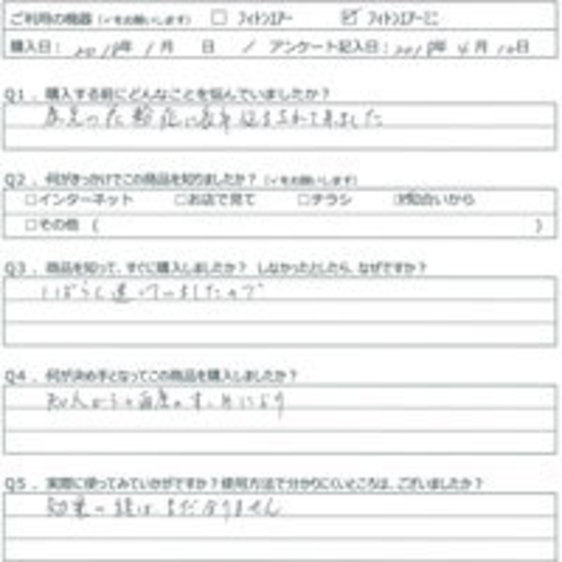 ご利用の機器（✓をお願いします） □ ﾌｨﾄﾝｴｱｰ ☑ ﾌｨﾄﾝｴｱｰミニ
購入日： 2018年 1月 日 ／ アンケート記入日：2018年 4月 10日
Q1．購入する前にどんなことを悩んでいましたか？
Q2．何がきっかけでこの商品を知りましたか？（✓をお願いします）
□インターネット □お店で見て □チラシ ☑知合いから
□その他（ ）
Q3．商品を知って、すぐに購入しましたか？ しなかったとしたら、なぜですか？
しばらく迷っていましたので
Q4．何が決め手となってこの商品を購入しましたか？
知人からの
Q5．実際に使ってみていかがですか？使用方法で分かりにくいところは、ございましたか？
効果の程は、まだ分りません